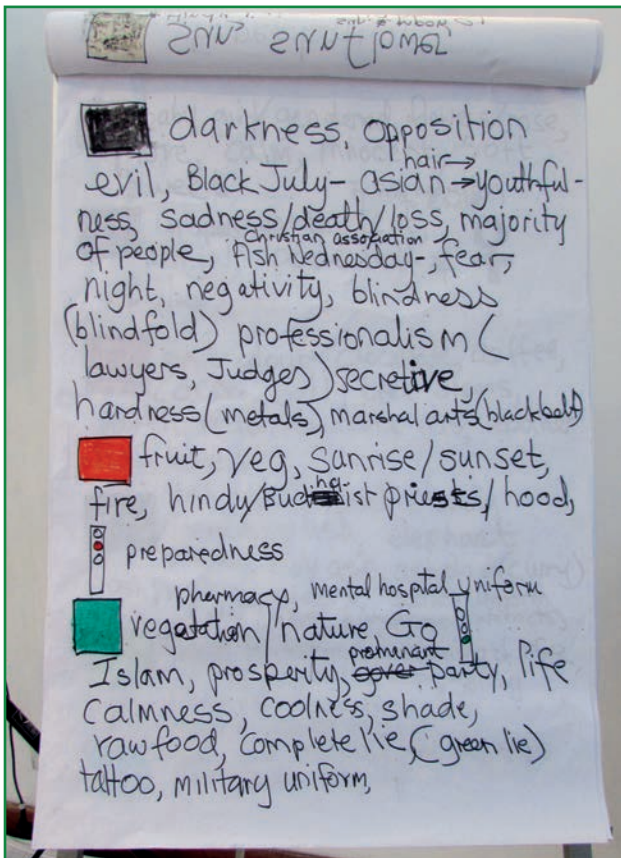 darkness, opposition
hair→
evil, Black July- asian →youthful-
ness, sadness/death/loss, majority
Christian association
of people, Ash Wednesday-, fear,
night, negativity, blindness
(blindfold) professionalism (
lawyers, Judges) secretive,
hardness (metals) marshal arts (blackbelt)
fruit, veg, Sunrise/sunset,
fire, hindy/Budhist priests/hood,
preparedness
pharmacy, mental hospital uniform
vegetation/nature, Go
prominant
Islam, prosperity, gover party, life
Calmness, coolness, shade,
raw food, complete lie, (green lie)
tattoo, military uniform,